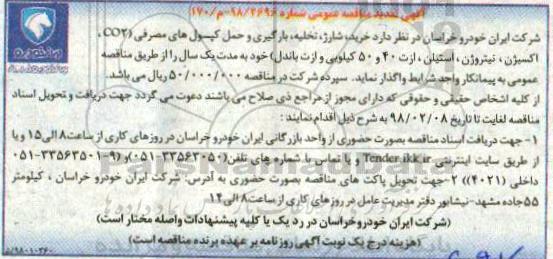 آگهی تمدید مناقصه عمومی شماره ۹۸/۲۶۹۶-م/۱۷۰
شرکت ایران خودرو خراسان در نظر دارد خرید، شارژ، تخلیه، بارگیری و حمل کپسول های مصرفی (CO۲،
اکسیژن ، نیتروژن ، استیلن ، ازت ۴۰ و ۵۰ کیلویی و ازت باندل) خود به مدت یک سال را از طریق مناقصه
عمومی به پیمانکار واجد شرایط واگذار نماید. سپرده شرکت در مناقصه ۵۰/۰۰۰/۰۰۰ ریال می باشد.
از کلیه اشخاص حقیقی و حقوقی که دارای مجوز از مراجع ذی صلاح می باشند دعوت می گردد جهت دریافت و تحویل اسناد
مناقصه لغایت تا تاریخ ۹۸/۰۲/۰۸ به شرح ذیل اقدام نمایند :
۱- جهت دریافت اسناد مناقصه بصورت حضوری از واحد بازرگانی ایران خودرو خراسان در روزهای کاری از ساعت ۸ الی ۱۵ و یا
از طریق سایت اینترنتی Tender.ikk.ir و یا تماس با شماره های تلفن (۳۳۵۶۳۰۵۰-۰۵۱) و (۹-۳۳۵۶۳۵۰۱-۰۵۱
داخلی (۴۰۲۱)) ۲-جهت تحویل پاکت های مناقصه بصورت حضوری به آدرس: شرکت ایران خودرو خراسان ، کیلومتر
۵۵ جاده مشهد-نیشابور دفتر مدیریت عامل در روزهای کاری از ساعت ۸ الی ۱۴
(شرکت ایران خودرو خراسان در رد یک یا کلیه پیشنهادات واصله مختار است)
(هزینه درج یک نوبت آگهی روزنامه بر عهده برنده مناقصه است)
ایران خودرو
۹۸۰۱۰۳۶۰/ق